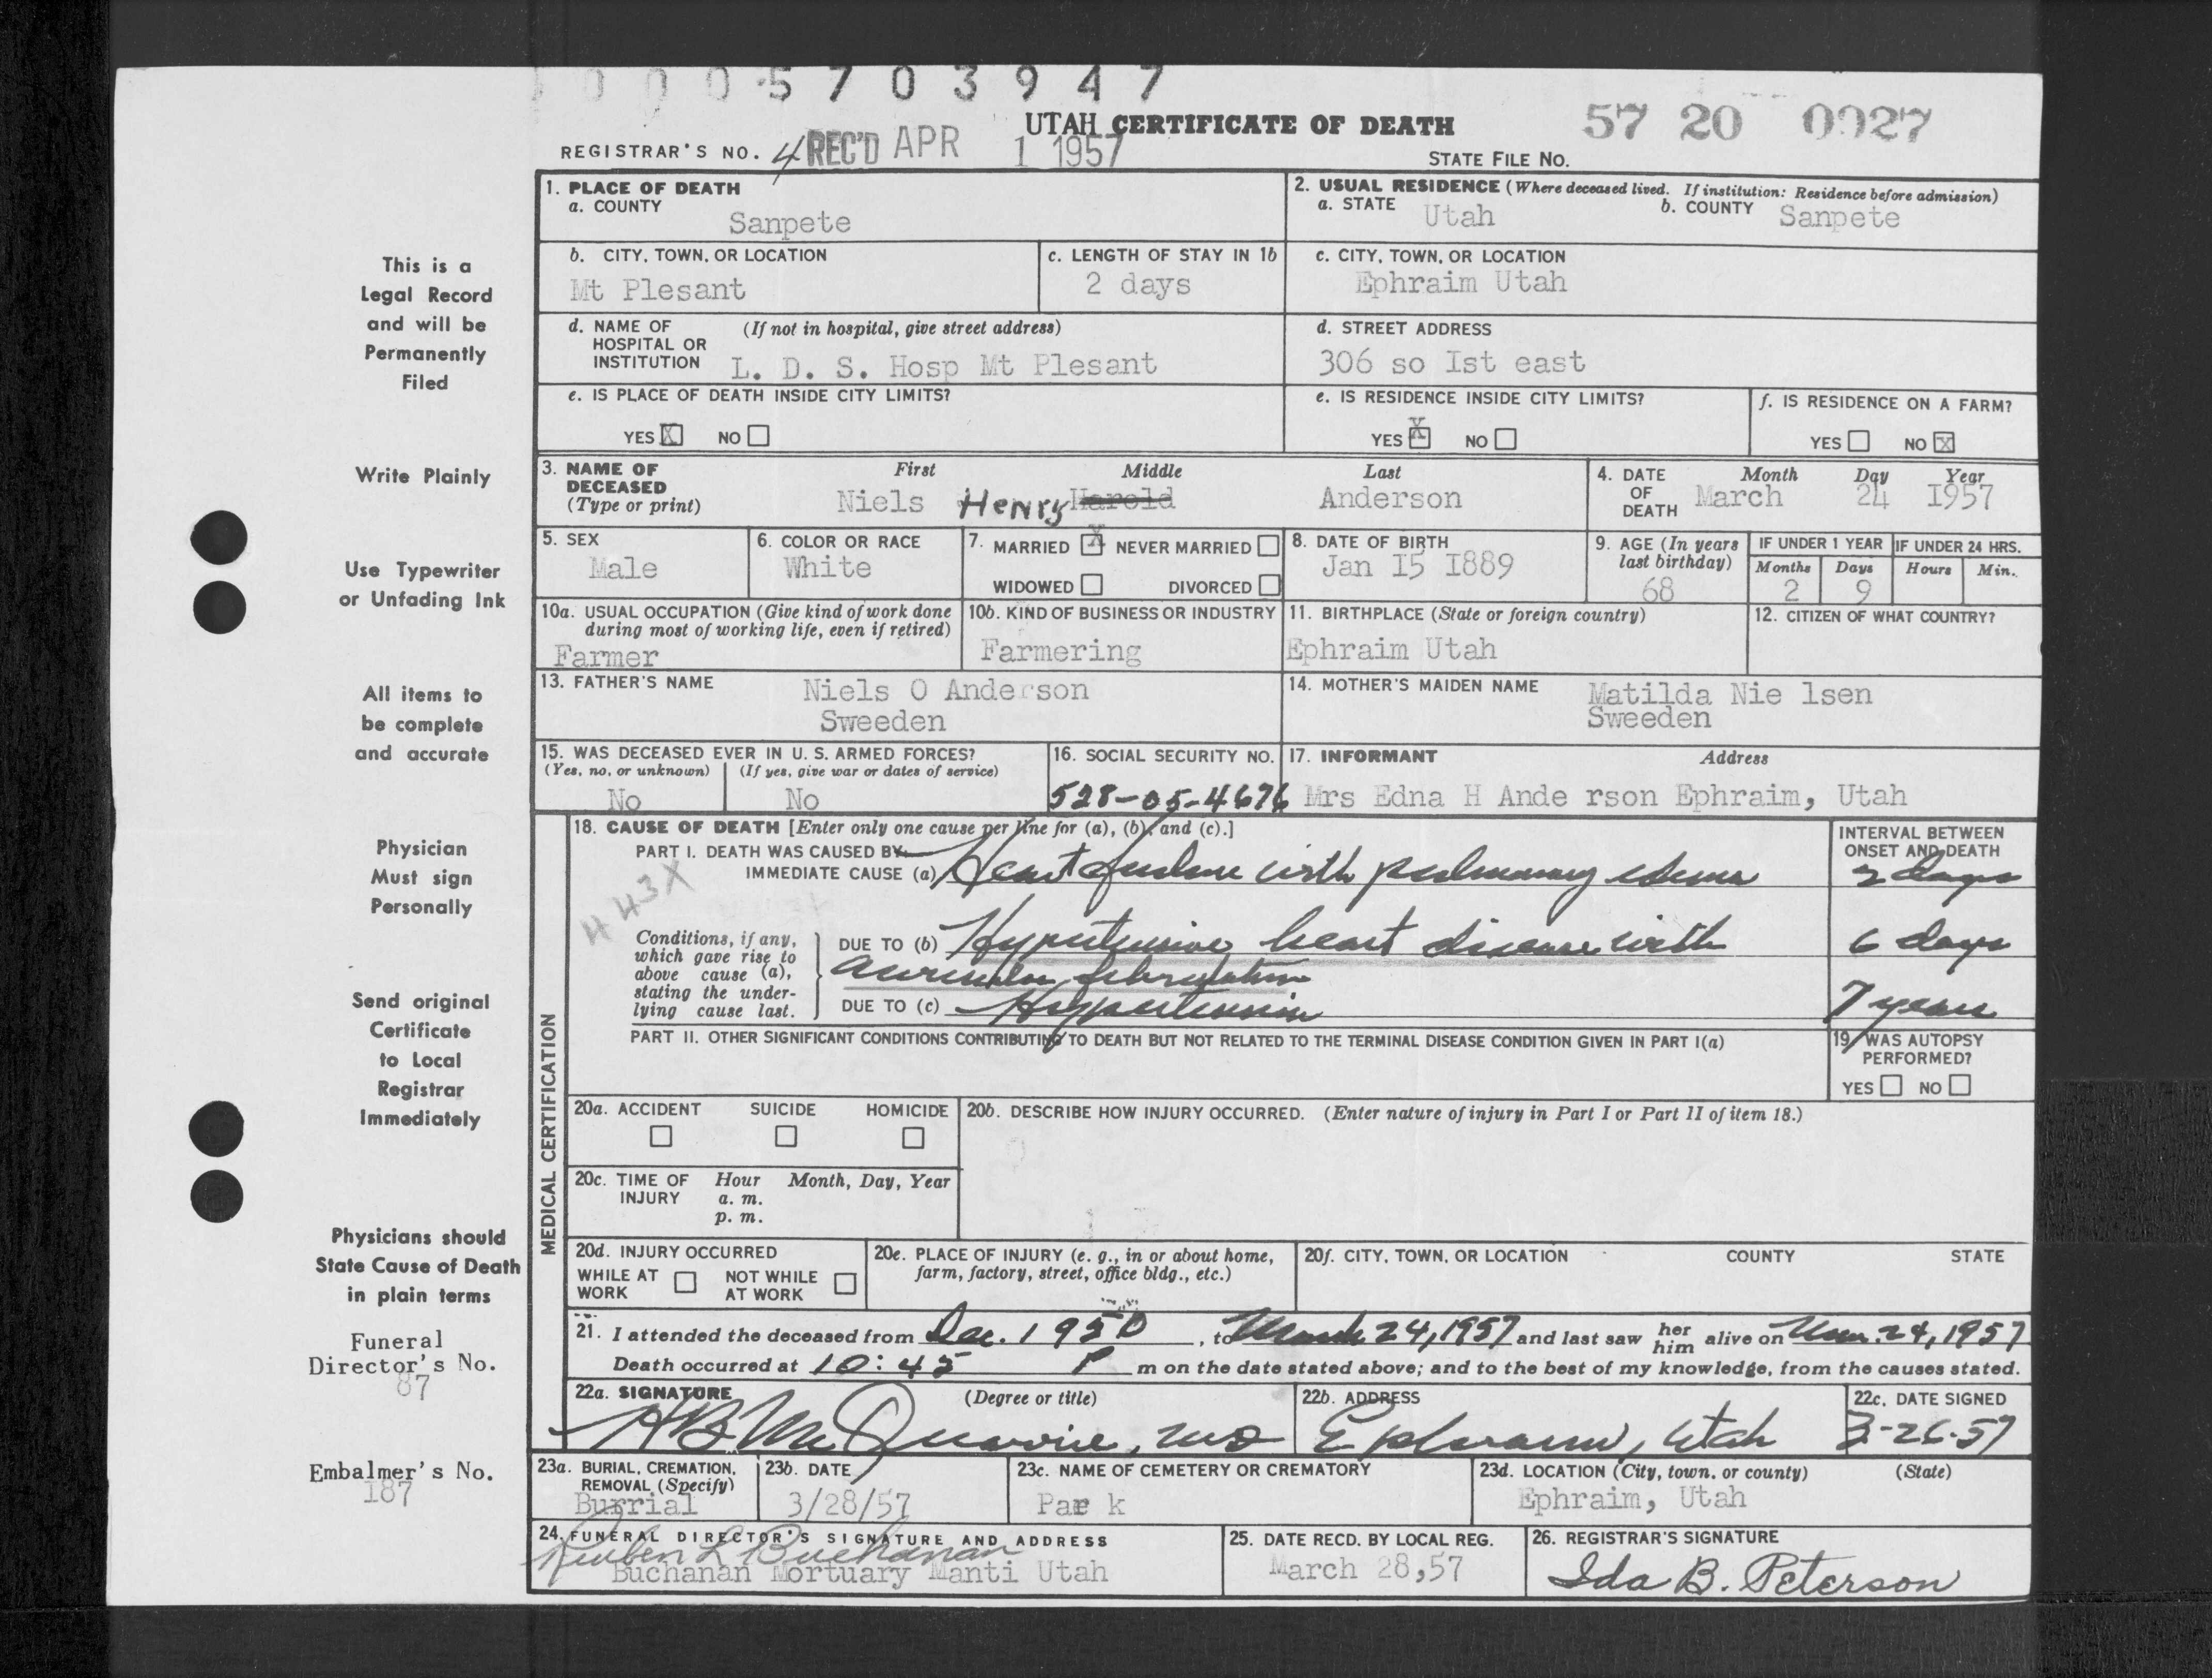 0 0 0 5 7 0 3 9 4 7
UTAH CERTIFICATE OF DEATH
57 20 0927
REGISTRAR'S NO. 4 REC'D APR 1 1957
STATE FILE NO.
1. PLACE OF DEATH
a. COUNTY
Sanpete
2. USUAL RESIDENCE (Where deceased lived. If institution: Residence before admission)
a. STATE Utah b. COUNTY Sanpete
b. CITY, TOWN, OR LOCATION
Mt Plesant
c. LENGTH OF STAY IN 1b
2 days
c. CITY, TOWN, OR LOCATION
Ephraim Utah
d. NAME OF HOSPITAL OR INSTITUTION (If not in hospital, give street address)
L. D. S. Hosp Mt Plesant
d. STREET ADDRESS
306 so Ist east
e. IS PLACE OF DEATH INSIDE CITY LIMITS?
YES X NO
e. IS RESIDENCE INSIDE CITY LIMITS?
YES X NO
f. IS RESIDENCE ON A FARM?
YES NO X
3. NAME OF DECEASED (Type or print)
First Middle Last
Niels Henry Harold Anderson
4. DATE OF DEATH
Month Day Year
March 24 I957
5. SEX
Male
6. COLOR OR RACE
White
7. MARRIED X NEVER MARRIED
WIDOWED DIVORCED
8. DATE OF BIRTH
Jan I5 I889
9. AGE (In years last birthday)
68
IF UNDER 1 YEAR
Months Days
2 9
IF UNDER 24 HRS.
Hours Min.
10a. USUAL OCCUPATION (Give kind of work done during most of working life, even if retired)
Farmer
10b. KIND OF BUSINESS OR INDUSTRY
Farmering
11. BIRTHPLACE (State or foreign country)
Ephraim Utah
12. CITIZEN OF WHAT COUNTRY?
13. FATHER'S NAME
Niels O Anderson
Sweeden
14. MOTHER'S MAIDEN NAME
Matilda Nie lsen
Sweeden
15. WAS DECEASED EVER IN U. S. ARMED FORCES?
(Yes, no, or unknown) (If yes, give war or dates of service)
No No
16. SOCIAL SECURITY NO.
528-05-4676
17. INFORMANT Address
Mrs Edna H Ande rson Ephraim, Utah
MEDICAL CERTIFICATION
18. CAUSE OF DEATH [Enter only one cause per line for (a), (b), and (c).]
INTERVAL BETWEEN ONSET AND DEATH
PART I. DEATH WAS CAUSED BY:
IMMEDIATE CAUSE (a) Heart failure with pulmonary edema
2 days
443X
Conditions, if any, which gave rise to above cause (a), stating the underlying cause last.
DUE TO (b) Hypertensive heart disease with
auricular fibrillation
6 days
DUE TO (c) Hypertension
7 years
PART II. OTHER SIGNIFICANT CONDITIONS CONTRIBUTING TO DEATH BUT NOT RELATED TO THE TERMINAL DISEASE CONDITION GIVEN IN PART I(a)
19. WAS AUTOPSY PERFORMED?
YES NO
20a. ACCIDENT SUICIDE HOMICIDE
20b. DESCRIBE HOW INJURY OCCURRED. (Enter nature of injury in Part I or Part II of item 18.)
20c. TIME OF INJURY
Hour Month, Day, Year
a. m.
p. m.
20d. INJURY OCCURRED
WHILE AT WORK NOT WHILE AT WORK
20e. PLACE OF INJURY (e. g., in or about home, farm, factory, street, office bldg., etc.)
20f. CITY, TOWN, OR LOCATION COUNTY STATE
21. I attended the deceased from Dec. 1950, to March 24, 1957 and last saw her him alive on Mar. 24, 1957
Death occurred at 10:45 P m on the date stated above; and to the best of my knowledge, from the causes stated.
22a. SIGNATURE (Degree or title)
H B McQuarrie, MD
22b. ADDRESS
Ephraim, Utah
22c. DATE SIGNED
3-26-57
23a. BURIAL, CREMATION, REMOVAL (Specify)
Burrial
23b. DATE
3/28/57
23c. NAME OF CEMETERY OR CREMATORY
Park
23d. LOCATION (City, town, or county) (State)
Ephraim, Utah
24. FUNERAL DIRECTOR'S SIGNATURE AND ADDRESS
Reuben L Buchanan
Buchanan Mortuary Manti Utah
25. DATE RECD. BY LOCAL REG.
March 28,57
26. REGISTRAR'S SIGNATURE
Ida B. Peterson
This is a
Legal Record
and will be
Permanently
Filed
Write Plainly
Use Typewriter
or Unfading Ink
All items to
be complete
and accurate
Physician
Must sign
Personally
Send original
Certificate
to Local
Registrar
Immediately
Physicians should
State Cause of Death
in plain terms
Funeral
Director's No.
87
Embalmer's No.
187